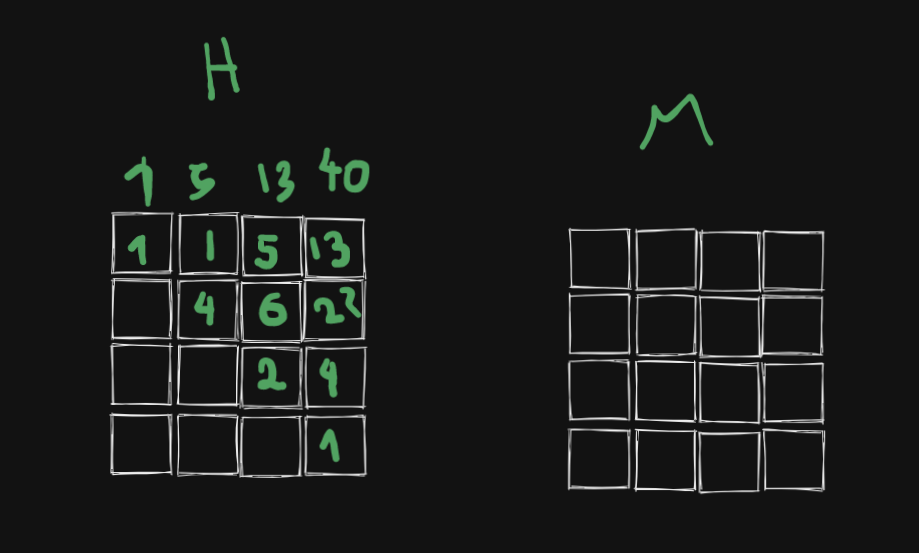 H
M
1 5 13 40
1 1 5 13
4 6 22
2 4
1